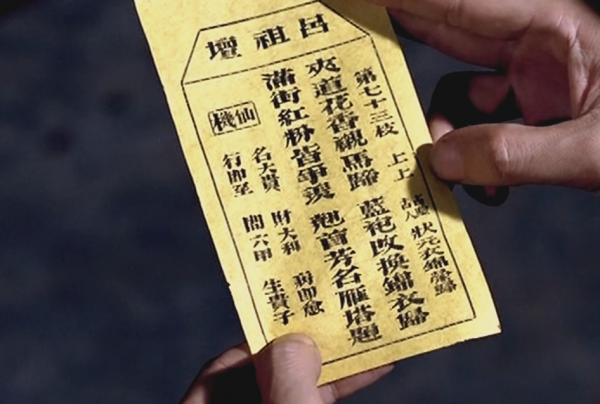 呂祖壇
第七十三枝 上上 狀元衣錦榮歸
夾道花香襯馬蹄 藍袍改換錦衣歸
滿街紅粉皆爭羨 翹首芳名雁塔題
仙機
名大貴 財大利 病即愈
行即至 問六甲 生貴子